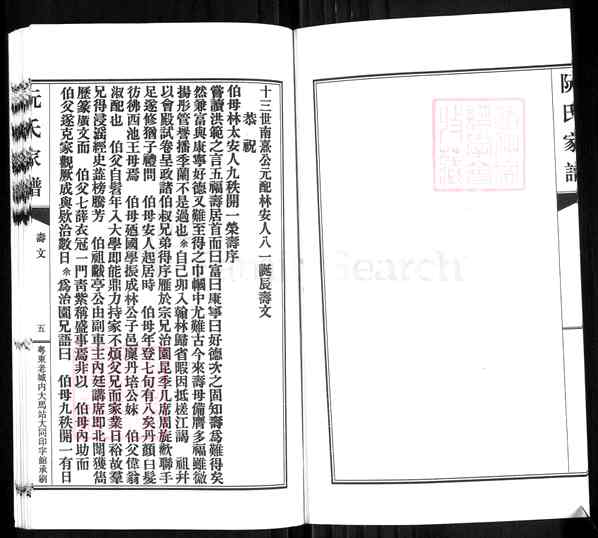 阮氏家譜
十三世南熹公元配林安人八一誕辰壽文
恭祝
伯母林太安人九秩開一榮壽序
嘗讀洪範之言五福壽居首而曰富曰康寧曰好德次之固知壽爲難得矣
然兼富與康寧好德又難至得之巾幗中尤難古今來壽母備膺多福雖徽
揚彤管譽播季蘭不是過也余自己卯入翰林歸省暇因抵槎江謁 祖幷
以會殿試卷呈政諸伯叔兄弟得序雁於宗兄治園昆季几席周旋歡聯手
足遂修猶子禮問 伯母安人起居時 伯母年登七旬有八矣丹顏白髮
彷彿西池王母焉 伯母廼國學振成林公子邑廩丹培公妹 伯父偉翁
淑配也 伯父自髫年入大學即能鼎力持家不煩父兄而家業日裕故羣
兄得浸淫經史蕋榜騰芳 伯祖黻亭公由副車主內廷講席即北闈獲雋
歷篆廣文而 伯父七薛衣冠一門靑紫稱盛事焉非以 伯母內助而
伯父遂克家觀厥成與歟治數日余爲治園兄語曰 伯母九秩開一有日
阮氏家譜
壽文
五
粵東老城內大馬站大同印字館承刷